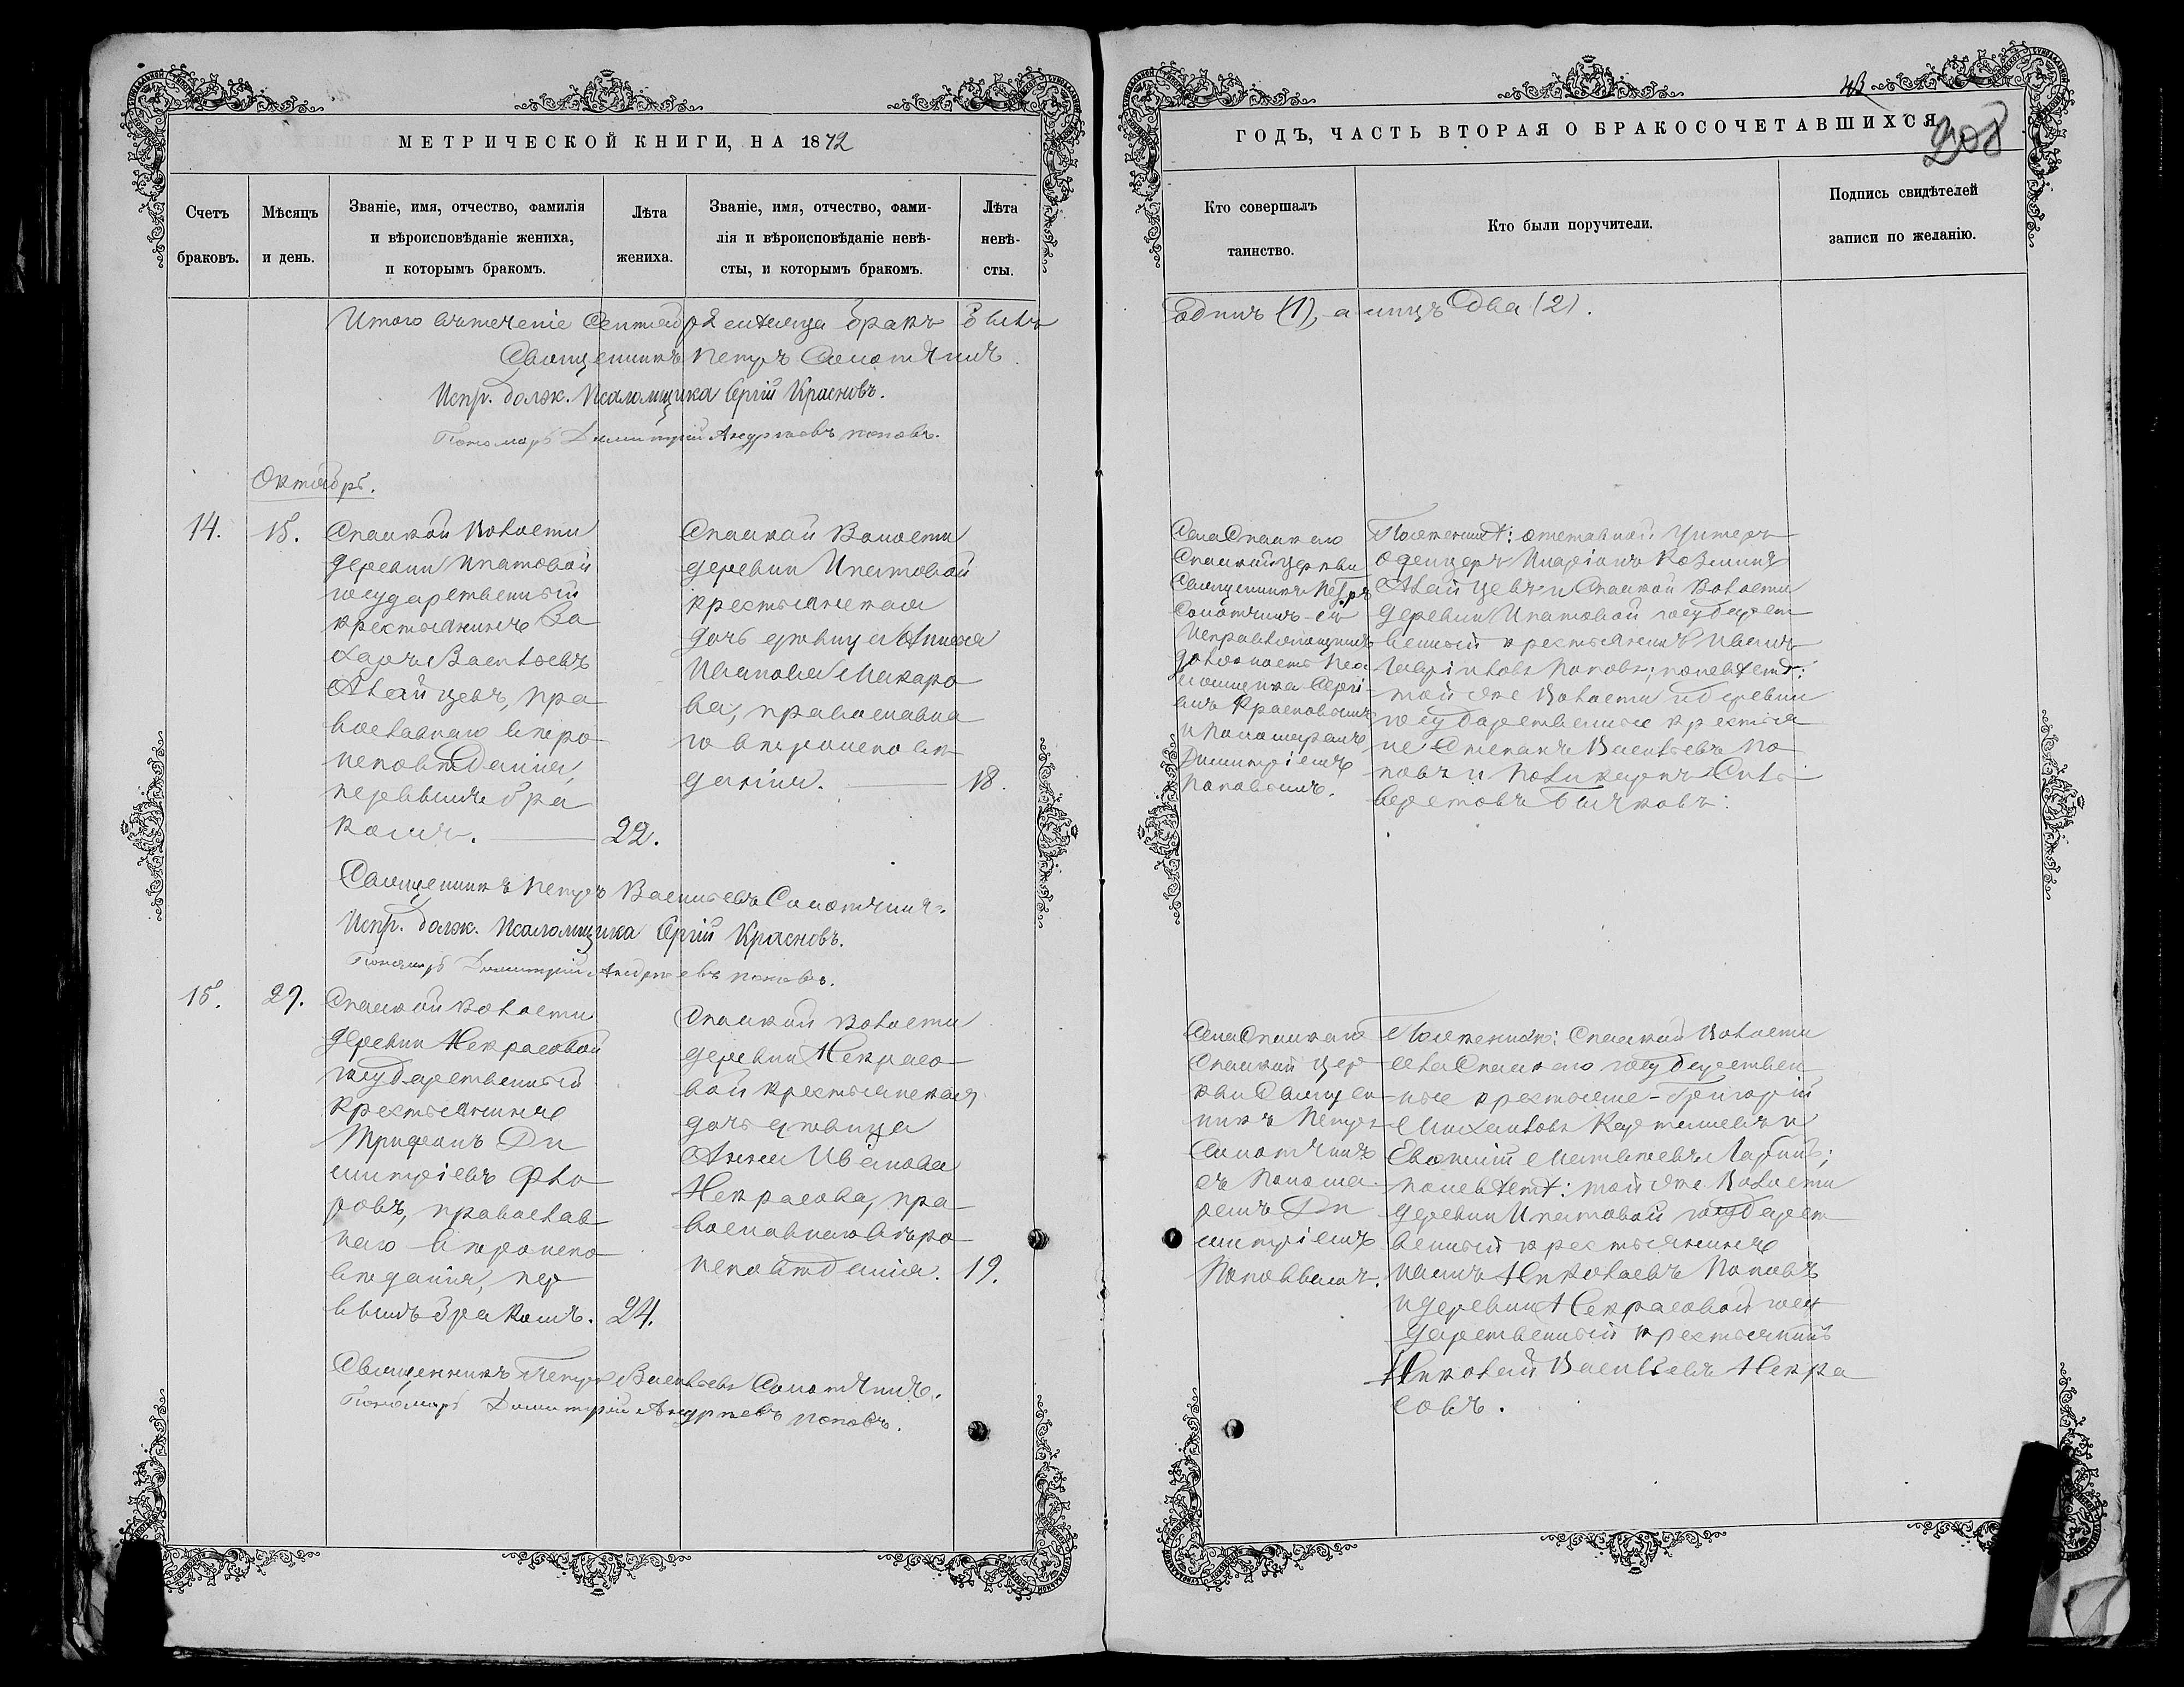 МЕТРИЧЕСКОЙ КНИГИ, НА 1872
Счетъ браковъ.
Мѣсяцъ и день.
Званіе, имя, отчество, фамилія
и вѣроисповѣданіе жениха,
и которымъ бракомъ.
Лѣта
жениха.
Званіе, имя, отчество, фами-
лія и вѣроисповѣданіе невѣ-
сты, и которымъ бракомъ.
Лѣта
невѣ-
сты.
Итого въ теченіе Сентября мѣсяца бракъ былъ
Священникъ Петръ
Испр. долж. Псаломщика Сергій Красновъ.
Пономарь Димитрій Андреевъ Поповъ.
Октябрь.
14.
15.
Спасской Волости
деревни Ипатовой
государственный
крестьянинъ За
харъ Васильевъ
Агайцевъ, пра
вославнаго вѣро
исповѣданія,
первымъ бра
комъ.
22.
Спасской Волости
деревни Ипатовой
крестьянская
дочь дѣвица Анна
Иванова Макаро
ва, православна
го вѣроисповѣ
данія.
18.
Священникъ Петръ Васильевъ
Испр. долж. Псаломщика Сергій Красновъ.
Пономарь Димитрій Андреевъ Поповъ.
15.
29.
Спасской Волости
деревни Некрасовой
государственный
крестьянинъ
Трифонъ Ди
митріевъ Фло
ровъ, православ
наго вѣроиспо
вѣданія, пер
вымъ бракомъ.
24.
Спасской Волости
деревни Некрасо
вой крестьянская
дочь дѣвица
Анна Иванова
Некрасова, пра
вославнаго вѣро
исповѣданія.
19.
Священникъ Петръ Васильевъ
Пономарь Димитрій Андреевъ Поповъ.
ГОДЪ, ЧАСТЬ ВТОРАЯ О БРАКОСОЧЕТАВШИХСЯ
208
Кто совершалъ
таинство.
Кто были поручители.
Подпись свидѣтелей
записи по желанію.
одинъ (1), а лицъ два (2).
Села Спаскаго
Спаской церкви
Священникъ Петръ
съ
Исправляющимъ
должность Пса
ломщика Сергі
емъ Красновымъ
и Пономаремъ
Димитріемъ
Поповымъ.
По женихѣ: отставной Унтеръ
офицеръ Иларіонъ Козминъ
Агайцевъ и Спаской Волости
деревни Ипатовой государст
венный крестьянинъ Иванъ
Гавріиловъ Поповъ; по невѣстѣ:
той же Волости и деревни
государственные крестья
не Степанъ Васильевъ По
повъ и Поликарпъ Сильверстовъ Бычковъ.
Села Спаскаго
Спаской цер
кви Священ
никъ Петръ
съ Понома
ремъ Ди
митріемъ
Поповымъ.
По женихѣ: Спаской Волости
села Спаскаго государствен
ные крестьяне Григорій
Михаиловъ и
Евфимій Матвѣевъ
по невѣстѣ: той же Волости
деревни Ипатовой государст
венный крестьянинъ
Иванъ Николаевъ Поповъ
и деревни Некрасовой госу
дарственный крестьянинъ
Николай Васильевъ Некра
совъ.